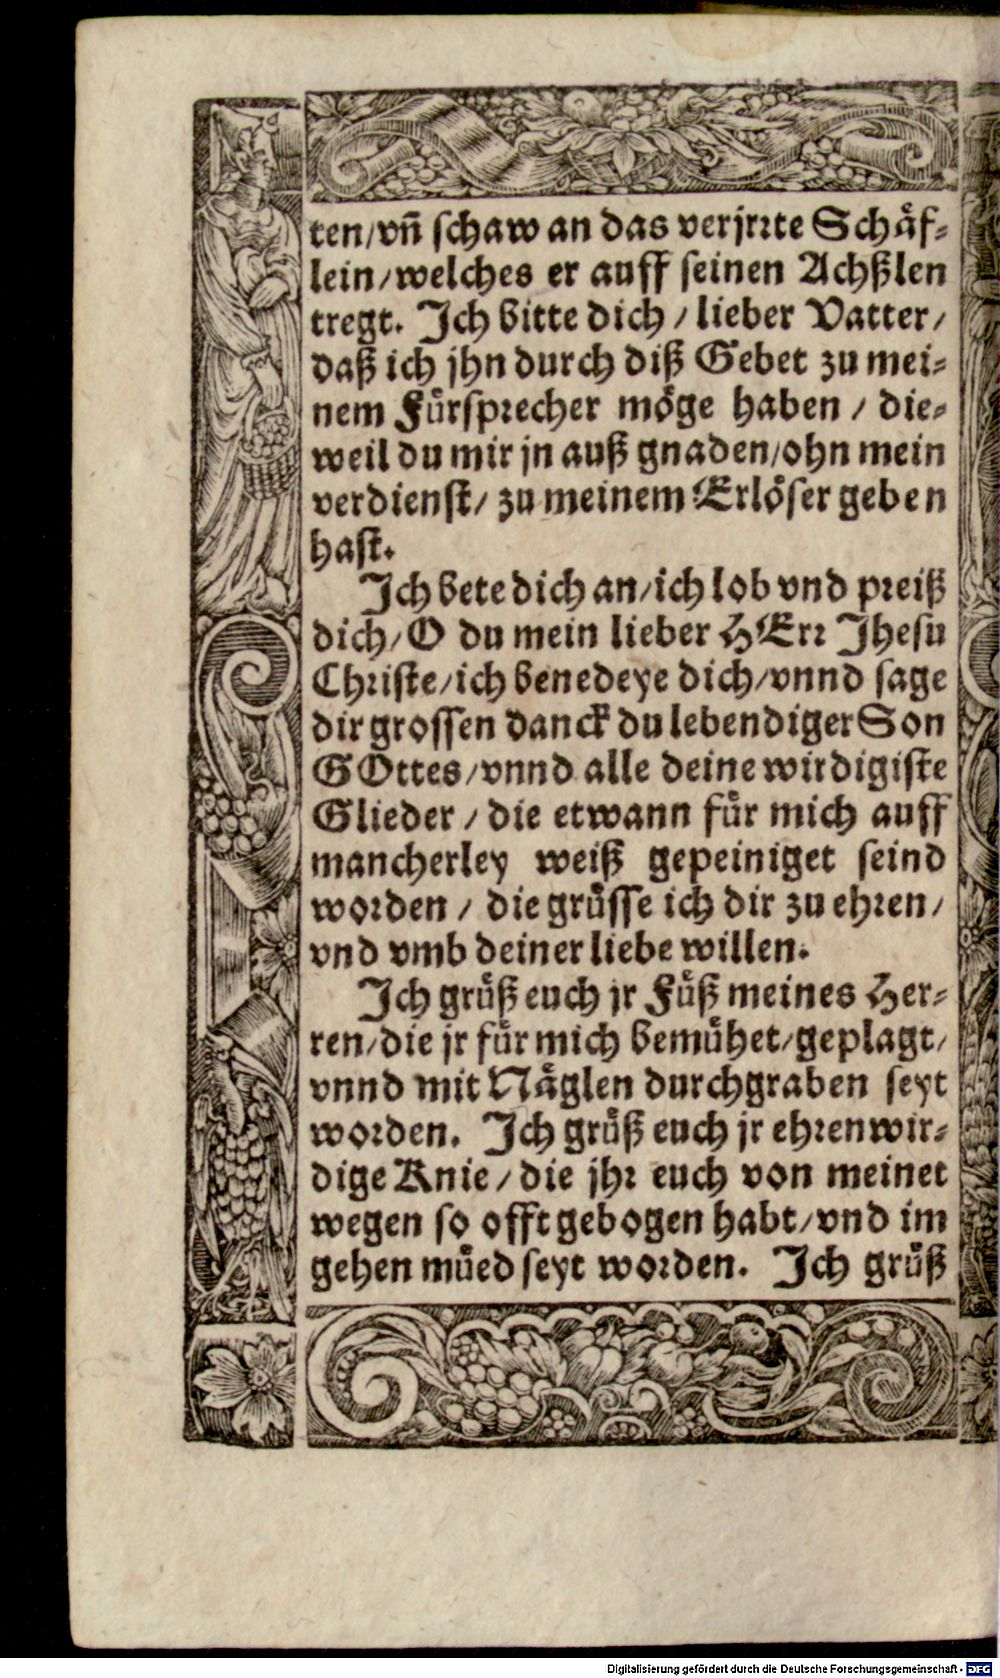 ten/vn̄ schaw an das verjrꝛte Schäf⸗
lein/welches er auff seinen Achßlen
tregt. Ich bitte dich / lieber Vatter/
daß ich jhn durch diß Gebet zu mei⸗
nem Fürspꝛecher möge haben / die⸗
weil du mir jn auß gnaden/ohn mein
verdienst/ zu meinem Erlöser geben
hast.
Ich bete dich an/ich lob vnd pꝛeiß
dich/O du mein lieber HErꝛ Jhesu
Chꝛiste/ich benedeye dich/vnnd sage
dir grossen danck du lebendiger Son
GOttes/vnnd alle deine wirdigiste
Glieder / die etwann für mich auff
mancherley weiß gepeiniget seind
woꝛden / die grüsse ich dir zu ehꝛen/
vnd vmb deiner liebe willen.
Ich grüß euch jr Füß meines Her⸗
ren/die jr für mich bemühet/geplagt/
vnnd mit Näglen durchgraben seyt
woꝛden. Ich grüß euch jr ehꝛenwir⸗
dige Knie/die jhꝛ euch von meinet
wegen so offt gebogen habt/vnd im
gehen müed seyt woꝛden. Ich grüß
Digitalisierung gefördert durch die Deutsche Forschungsgemeinschaft - DFG